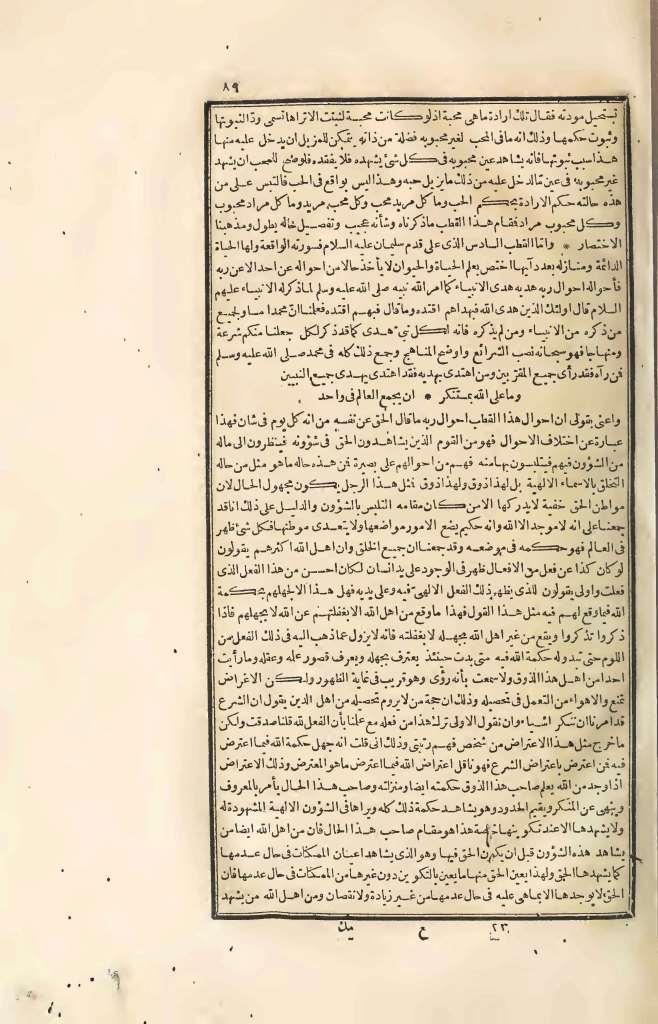 ٨٩
تستحيل مودته فقال تلك ارادة ماهى محبة اذلو كانت محبسة لثبتت الاتراها تسمى ودّا لثبوتها
وثبوت حكمها وذلك انه ما فى المحب لغير محبوبه فضلة من ذاته يتمكن للمزيل ان يدخل عليه منها
هذا سبب ثبوتها فانه يشاهد عين محبوبه فى كل شئ يشهده فلا يفقده فلو صح للمحب ان يشهد
غير محبوبه فى عين مّا لدخل عليه من ذلك ما يزيل حبه وهذا ليس بواقع فى الحب فالتبس على من
هذه حالته حكم الارادة بحكم الحب وما كل مريد محب وكل محب مريد وما كل مراد محبوب
وكل محبوب مراد فقام هذا القطب ما ذكرناه وشأنه عجيب وتفصيل حاله يطول ومذهبنا
الاختصار * وامّا القطب السادس الذى على قدم سليمان عليه السلام فسورته الواقعة ولها الحياة
الدائمة ومنازله بعدد آيها اختص بعلم الحياة والحيوان لا يأخذ حالا من احواله عن احد الا عن ربه
فأحواله احوال ربه هديه هدى الانبياء كما امر الله نبيه صلى الله عليه وسلم لما ذكر له الانبياء عليهم
السلام قال اولئك الذين هدى الله فبهداهم اقتده وما قال فبهم اقتده فعلمنا انّ محمدا مساو لجميع
من ذكره من الانبياء ومن لم يذكره فانه لكل نبىّ هدى كما قد ذكر لكل جعلنا منكم شرعة
ومنهاجا فهو سبحانه نصب الشرائع واوضح المناهج وجمع ذلك كله فى محمد صلى الله عليه وسلم
فمن رآه فقد رأى جميع المقرّبين ومن اهتدى بهديه فقد اهتدى بهدى جميع النبيين
وما على الله بمستنكر * ان يجمع العالم فى واحد
واعنى بقولى ان احوال هذا القطب احوال ربه ما قال الحق عن نفسه من انه كل يوم فى شان فهذا
عبارة عن اختلاف الاحوال فهو من القوم الذين يشاهدون الحق فى شؤونه فينظرون الى ماله
من الشؤون فيهم فيتلبسون بها منه فهم من احوالهم على بصيرة فمن هذه حاله ما هو مثل من حاله
التخلق بالاسماء الالهية بل لهذا ذوق ولهذا ذوق فمثل هذا الرجل يكون مجهول الحال لان
مواطن الحق خفية لا يدركها الا من كان مقامه التلبس بالشؤون والدليل على ذلك اناقد
جمعنا على انه لا موجد الا الله وانه حكيم يضع الامور مواضعها ولا يتعدى موطنها فكل شئ ظهر
فى العالم فهو حكمه فى موضعه وقد جمعنا ان جميع الخلق وان اهل الله اكثرهم يقولون
لو كان كذا عن فعل من الافعال ظهر فى الوجود على يد انسان لكان احسن من هذا الفعل الذى
فعلت واولى يقولون للذى يظهر ذلك الفعل الالهى فيه وعلى يديه فهل هذا الا لجهلهم بحكمة
الله فيما وقع لهم فيه مثل هذا القول فهذا ما وقع من اهل الله الا بغفلتهم عن الله لا بجهلهم فاذا
ذكروا تذكروا ويقع من غير اهل الله بجهله لا بغفلته فانه لا يزول عما ذهب اليه فى ذلك الفعل من
اللوم حتى تبدو له حكمة الله فيه متى بدت حينئذ يعترف بجهله ويعرف قصور علمه وعقله وما رأيت
احدا من اهل هذا الذوق ولا سمعت بأنه رؤى وهو قريب فى غاية الظهور ولكن الاغراض
تمنع والاهواء من التعمل فى تحصيله وذلك ان حجة من لا يروم تحصيله من اهل الدين يقول ان الشرع
قد امرنا ان ننكر اشياء وان نقول الاولى ترك هذا من فعله مع علمنا بأن الفعل لله قلنا صدقت ولكن
ما خرج مثل هذا الاعتراض من شخص فهم رتبتى وذلك انى قلت انه جهل حكمة الله فيما اعترض
فيه فمن اعترض باعتراض الشرع فهو ناقل اعتراض الله فيما اعترض ما هو المعترض وذلك الاعتراض
اذا وجد من الله يعلم صاحب هذا الذوق حكمته ايضا ومنزلته وصاحب هذا الحال يأمر بالمعروف
وينهى عن المنكر ويقيم الحدود وهو يشاهد حكمة ذلك كله ويراها فى الشؤون الالهية المشهودة له
ولا يشهدها الا عند تكوينها خاصة هذا هو مقام صاحب هذا الحال فان من اهل الله ايضا من
يشاهد هذه الشؤون قبل ان يكون الحق فيها وهو الذى يشاهد اعيان الممكنات فى حال عدمها
كما يشهدها الحق ولهذا يعين الحق منها ما يعين بالتكوين دون غيرها من الممكنات فى حال عدمها فان
الحق لا يوجدها الا بما هى عليه فى حال عدمها من غير زيادة ولا نقصان ومن اهل الله من يشهد
٢٣ ح مك